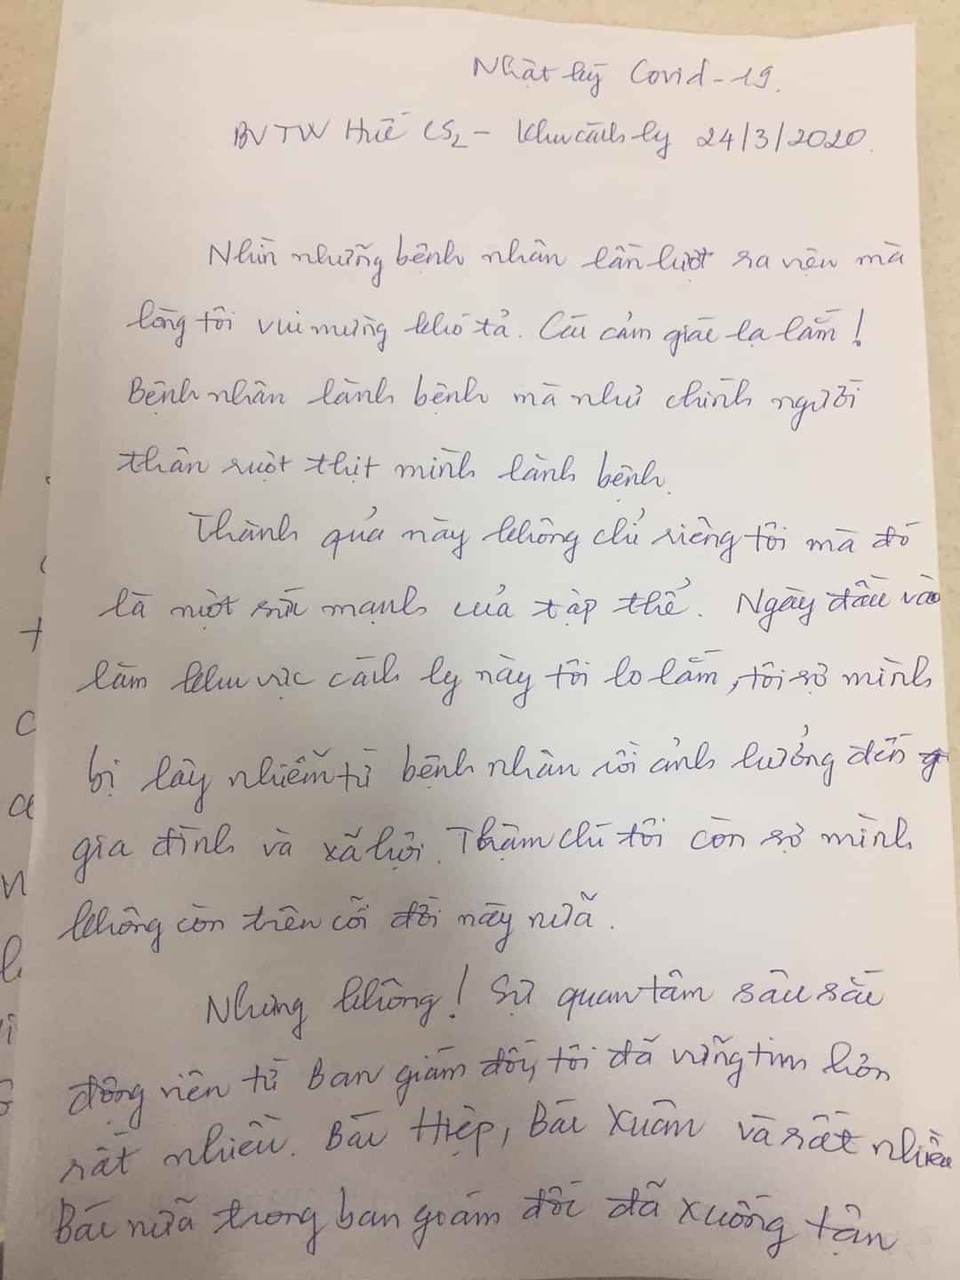 Nhật ký Covid-19.
BVTW Huế CS2 - Khu cách ly 24/3/2020.
Nhìn những bệnh nhân lần lượt ra viện mà
lòng tôi vui mừng khó tả. Cái cảm giác lạ lắm!
Bệnh nhân lành bệnh mà như chính người
thân ruột thịt mình lành bệnh.
Thành quả này không chỉ riêng tôi mà đó
là một sức mạnh của tập thể. Ngày đầu vào
làm khu vực cách ly này tôi lo lắm, tôi sợ mình
bị lây nhiễm từ bệnh nhân rồi ảnh hưởng đến
gia đình và xã hội. Thậm chí tôi còn sợ mình
không còn trên cõi đời này nữa.
Nhưng không! Sự quan tâm sâu sắc
động viên từ Ban giám đốc, tôi đã vững tim hơn
rất nhiều. Bác Hiệp, Bác Xuân và rất nhiều
Bác nữa trong ban giám đốc đã xuống tận